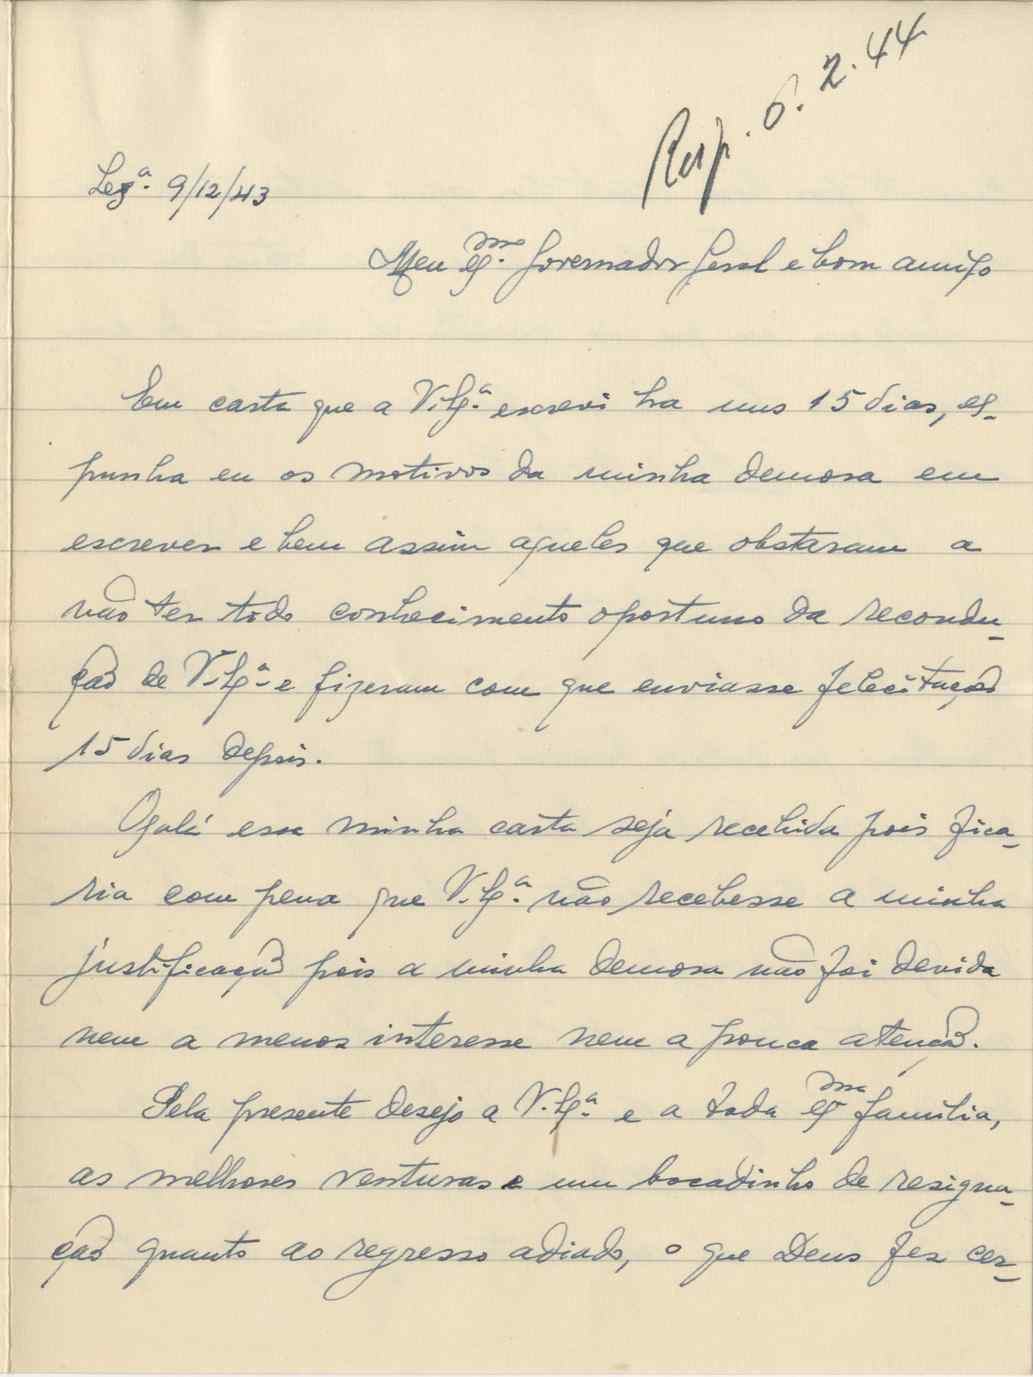 Resp. 6.2.44
Lexª. 9/12/43
Meu Exmo. Governador Geral e bom amigo
Em carta que a V. Exª. escrevi ha uns 15 dias, ex-
punha eu os motivos da minha demora em
escrever e bem assim aqueles que obstaram a
não ter tido conhecimento oportuno da recondu-
ção de V. Exª. e fizeram com que enviasse felecitações
15 dias depois.
Oxalá essa minha carta seja recebida pois fica-
ria com pena que V. Exª. não recebesse a minha
justificação pois a minha demora não foi devida
nem a menos interesse nem a pouca atenção.
Pela presente desejo a V. Exª. e a toda Exma família,
as melhores venturas e um bocadinho de resigna-
ção quanto ao regresso adiado, o que Deus fez cer-